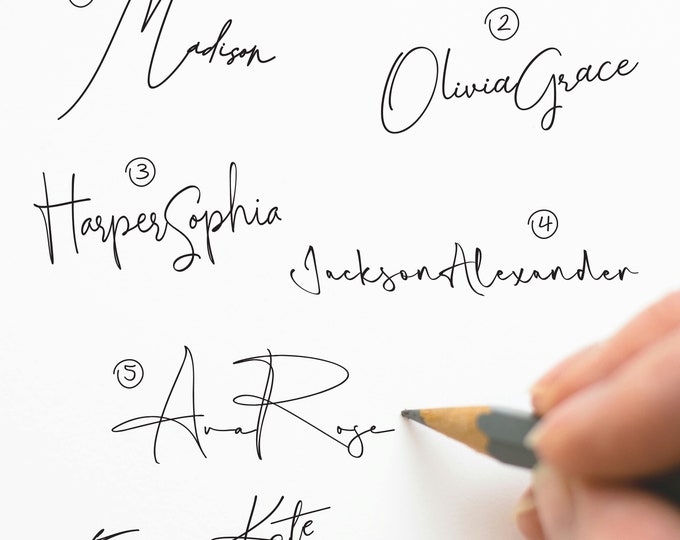 Madison
2
OliviaGrace
3
HarperSophia
4
JacksonAlexander
5
AvaRose
Kate